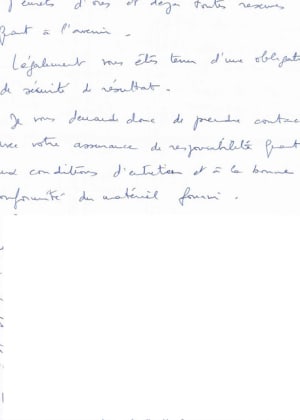 d'ores et déjà toutes réserves
quant à l'avenir.
Légalement vous êtes tenu d'une obligat
de sécurité de résultat.
Je vous demande donc de prendre contac
vec votre assurance de responsabilité quant
ux conditions d'entretien et à la bonne
onformité du matériel fourni.